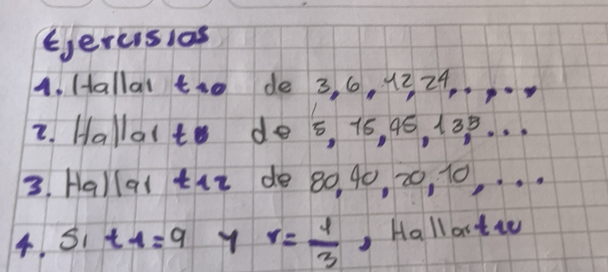 Ejercisios
1. Hallar t10 de 3, 6, 12, 24, . . , . .
2. Hallar t8 de 5, 15, 45, 135, ...
3. Hallar t12 de 80, 40, 20, 10, ....
4. Si t1=9 y r=1/3, Hallar t10